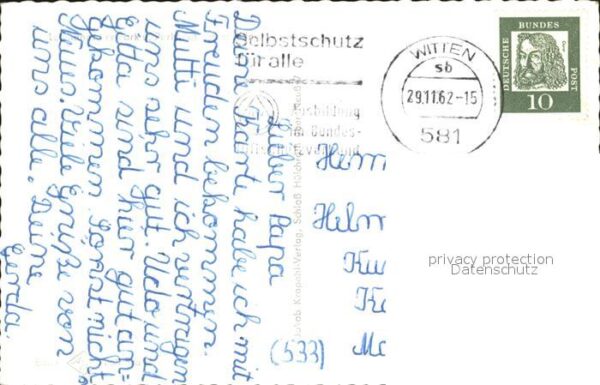 Lieber Papa
Deine Karte habe ich mit
Freuden bekommen.
Mutti und ich vertragen
uns sehr gut. Udo und
Etta sind hier gut an=
gekommen. Sonst nichts
Neues. Viele Grüße von
uns alle. Deine
Gerda.
Selbstschutz
für alle
Ausbildung
im Bundes-
luftschutzverband
WITTEN
sb
29.11.62-15
581
DEUTSCHE BUNDES POST
10
Herrn
Helm
Ku
(533)
privacy protection
Datenschutz